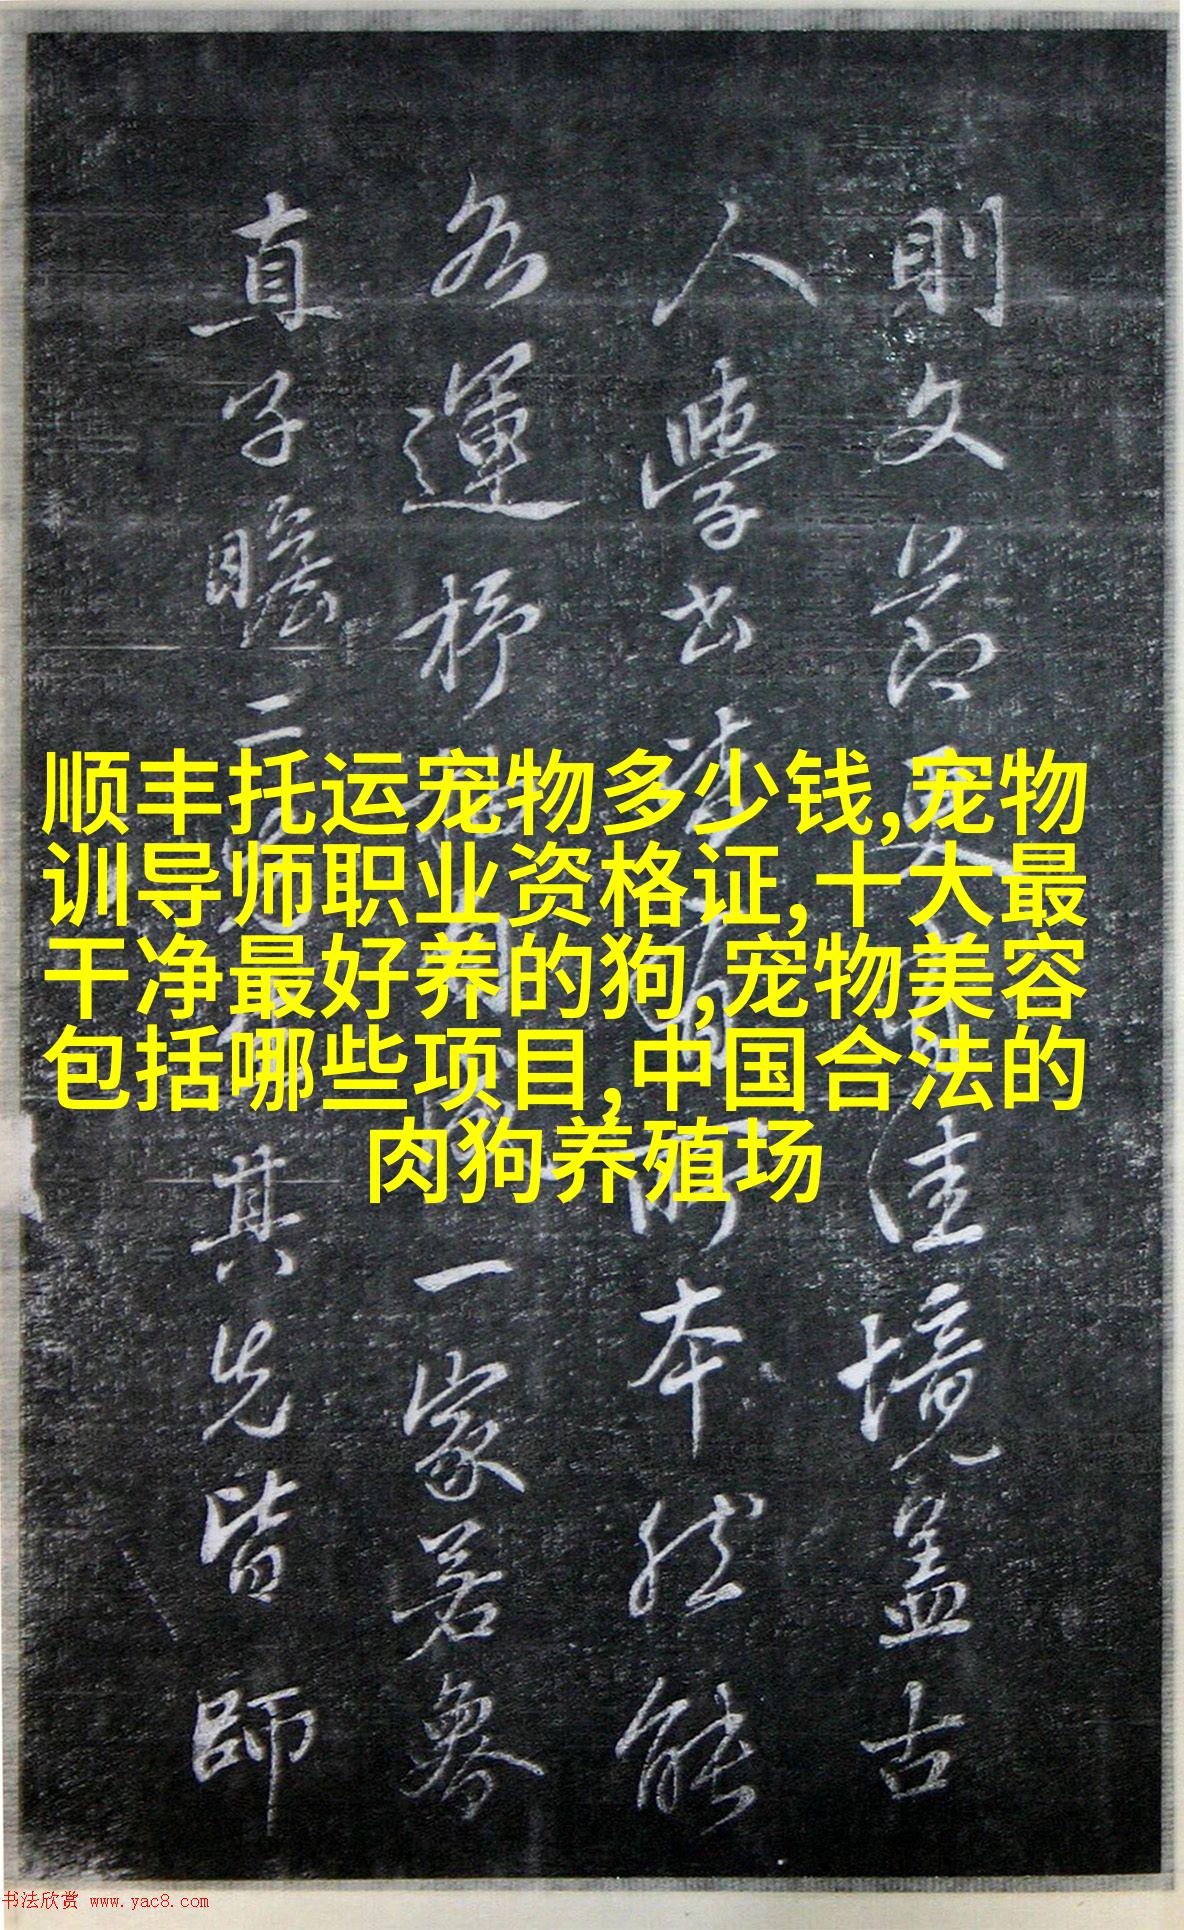 顺丰托运宠物多少钱,宠物
训导师职业资格证,十大最
干净最好养的狗,宠物美容
包括哪些项目,中国合法的
肉狗养殖场
則文節又佳境蓋古
人學書本然能
各運杼一家若魯
直子瞻二其先皆師
书法欣赏 www.yac8.com